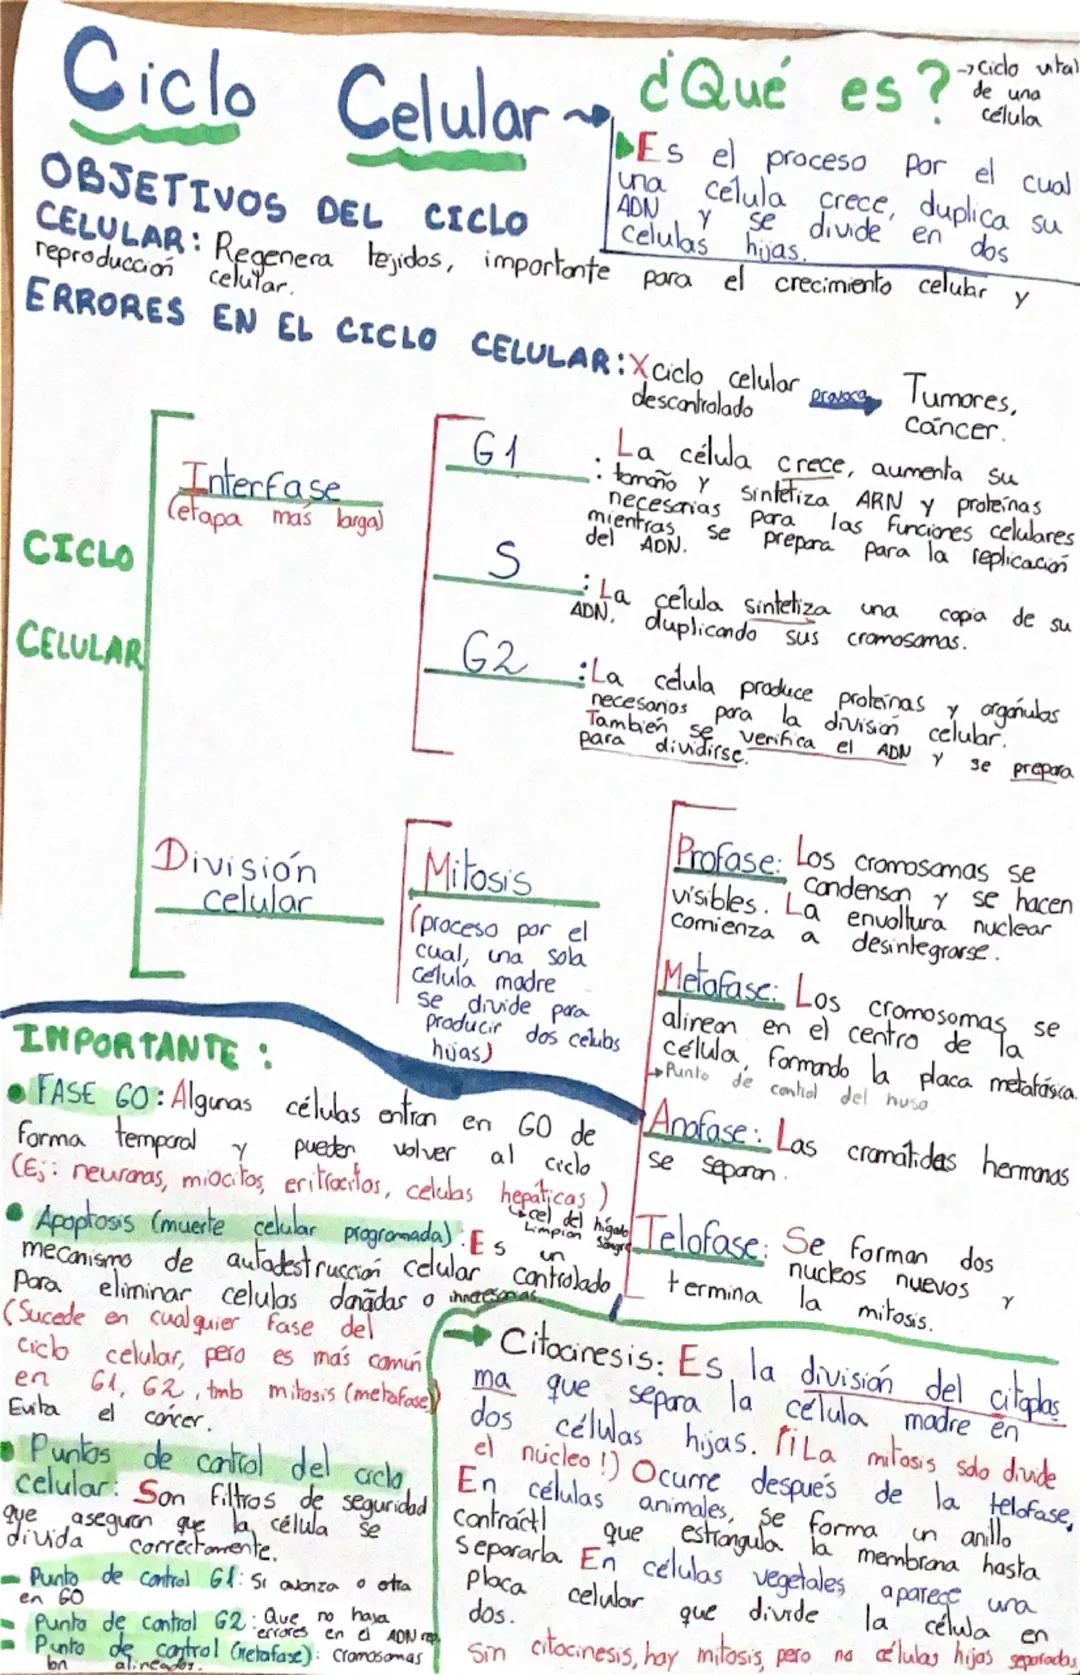 Ciclo Celular
¿Qué es?
→ Ciclo vital
de una
célula
Es el proceso por el cual
una célula crece, duplica su
ADN y se divide en dos
celulas hijas.
OBJETIVOS DEL CICLO
CELULAR: Regenera tejidos, importante para el crecimiento celular y
reproducción celular.
ERRORES EN EL CICLO CELULAR: X ciclo celular
descontrolado
provoca
Tumores,
cáncer.
CICLO
CELULAR
Interfase
(etapa mas larga)
G1
: La célula crece, aumenta su
tamaño y sintetiza ARN y proteínas
necesarias para las funciones celulares
mientras se prepara para la replicación
del ADN.
S
: La célula sintetiza una copia de su
ADN, duplicando sus cromosomas.
G2
: La celula produce proteínas y orgánulos
necesarios para la división celular.
También se verifica el ADN y se prepara
para dividirse.
División
celular
Mitosis
(proceso por el
cual, una sola
celula madre
se divide para
producir dos celulas
hijas)
Profase: Los cromosomas se
condensan y se hacen
visibles. La envoltura nuclear
comienza a desintegrarse.
Metafase: Los cromosomas se
alinean en el centro de la
célula, formando la placa metafásica.
→ Punto de control del huso
Anafase: Las cromátidas hermanas
se separan.
Telofase: Se forman dos
nucleos nuevos y
termina la mitosis.
IMPORTANTE:
FASE G0: Algunas células entran en G0 de
forma temporal y pueden volver al ciclo
(Ej: neuronas, miocitos, eritrocitos, celulas hepáticas)
cel del hígado
Limpian sangre
Apoptosis (muerte celular programada): Es un
mecanismo de autodestrucción celular controlado
para eliminar celulas dañadas o innecesarias.
(Sucede en cualquier fase del
ciclo celular, pero es más común
en G1, G2, tmb mitosis (metafase))
Evita el cáncer.
Puntos de control del ciclo
celular: Son filtros de seguridad
que aseguran que la célula se
divida correctamente.
- Punto de control G1: Si avanza o entra
en G0
- Punto de control G2: Que no haya
errores en el ADN rep
- Punto de control (metafase): cromosomas
bn alineados.
→ Citocinesis: Es la división del citoplas
ma que separa la célula madre en
dos células hijas. (¡La mitosis solo divide
el núcleo!) Ocurre después de la telofase,
En células animales, se forma un anillo
contráctl que estrangula la membrana hasta
separarla En células vegetales aparece una
placa celular que divide la célula en
dos.
Sin citocinesis, hay mitosis, pero no células hijas separadas